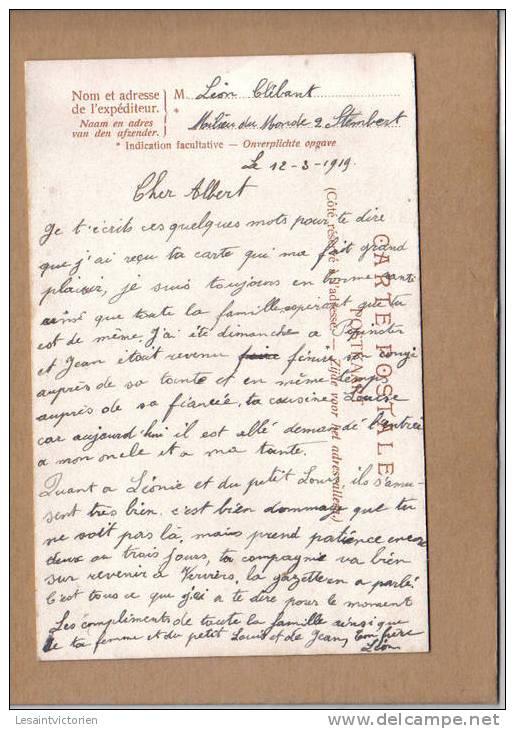 Nom et adresse
de l'expéditeur.
Naam en adres
van den afzender.
M. Léon Clébant
*
Milieu du Monde 2 Stembert
* Indication facultative — Onverplichte opgave
Le 12-3-1919.
Cher Albert
Je t'écrits ces quelques mots pour te dire
que j'ai reçu ta carte qui ma fait grand
plaisir, je suis toujours en bonne santé
ainsi que toute la famille esperant que tu
est de même. J'ai été dimanche a Pepinster
et Jean était revenu finir son congé
auprès de sa tante et en même temps
auprès de sa fiancée, ta cousine Louise
car aujourd'hui il est allé demandé l'entrée
a mon oncle et a ma tante.
Quant a Léonie et du petit Louis, ils s'amu-
sent très bien. c'est bien dommage que tu
ne soit pas là, mais prend patience encore
deux au trais jours, ta compagnie va bien
sur revenir à Verviers, la gazette en a parlé
C'est tous ce que j'ai a te dire pour le moment
Les compliments de toute la famille ainsi que
de ta femme et du petit Louis et de Jean, Ton frère
Léon
CARTE POSTALE
POSTKAART
(Côté réservé à l'adresse. — Zijde voor het adres alleen.)
Lesaintvictorien
http://www.delcampe.net